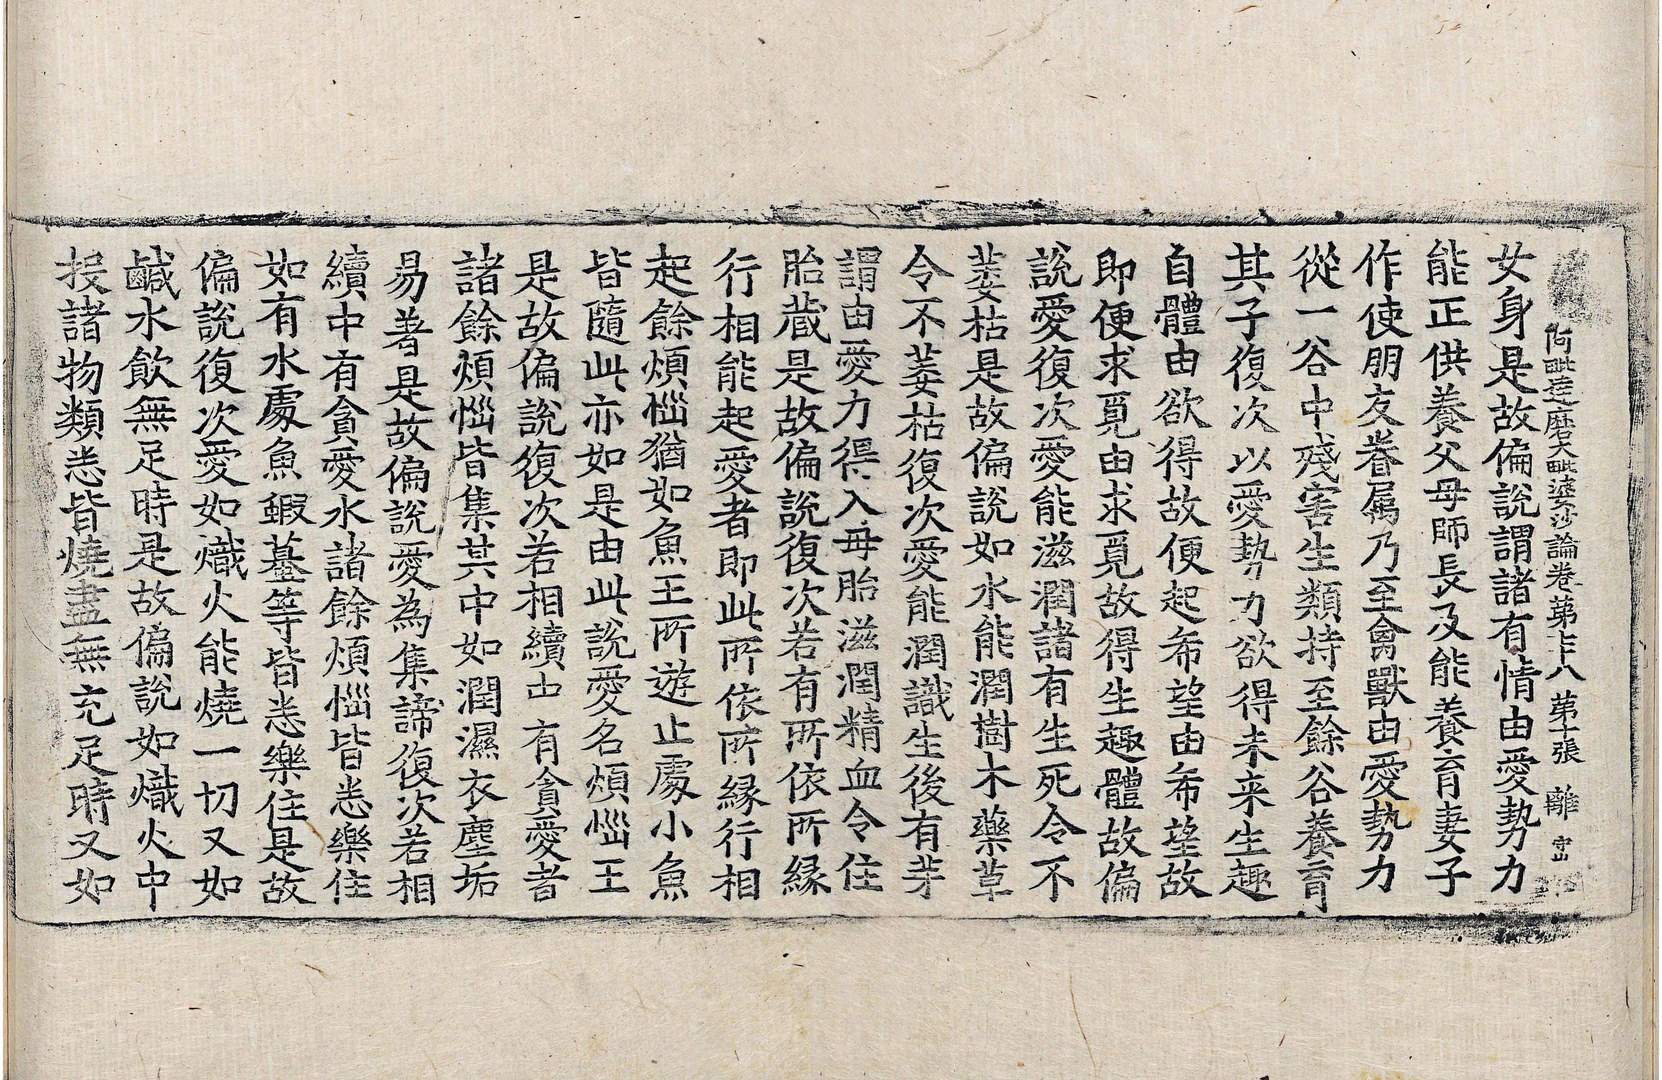 阿毗達磨大毗婆沙論卷第七十八 第十張 離 守山
女身是故偏說謂諸有情由愛勢力
能正供養父母師長及能養育妻子
作使朋友眷屬乃至禽獸由愛勢力
從一谷中殘害生類持至餘谷養育
其子復次以愛勢力欲得未来生趣
自體由欲得故便起希望由希望故
即便求覓由求覓故得生趣體故偏
說愛復次愛能滋潤諸有生死令不
萎枯是故偏說如水能潤樹木藥草
令不萎枯復次愛能潤識生後有芽
謂由愛力得入母胎滋潤精血令住
胎藏是故偏說復次若有所依所緣
行相能起愛者即此所依所緣行相
起餘煩惱猶如魚王所遊止處小魚
皆隨此亦如是由此說愛名煩惱王
是故偏說復次若相續中有貪愛者
諸餘煩惱皆集其中如潤濕衣塵垢
易著是故偏說愛為集諦復次若相
續中有貪愛水諸餘煩惱皆悉樂住
如有水處魚蝦蟇等皆悉樂住是故
偏說復次愛如熾火能燒一切又如
鹹水飲無足時是故偏說如熾火中
投諸物類悉皆燒盡無充足時又如